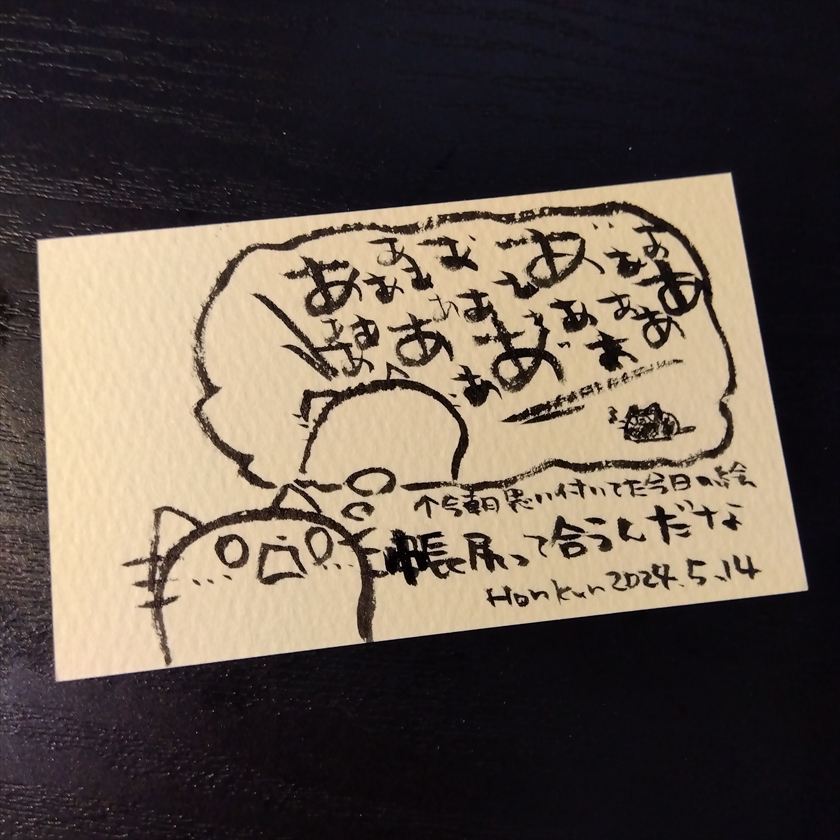 あああああああ
あああああああ
あああああああ
↑今朝思い付いてた今日の絵
帳尻って合うんだな
Honkun 2024.5.14